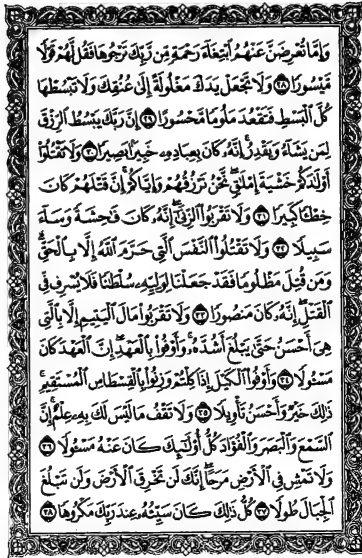 وَإِمَّا تُعْرِضَنَّ عَنْهُمُ ابْتِغَاءَ رَحْمَةٍ مِّن رَّبِّكَ تَرْجُوهَا فَقُل لَّهُمْ قَوْلًا
مَّيْسُورًا ٢٨ وَلَا تَجْعَلْ يَدَكَ مَغْلُولَةً إِلَىٰ عُنُقِكَ وَلَا تَبْسُطْهَا
كُلَّ الْبَسْطِ فَتَقْعُدَ مَلُومًا مَّحْسُورًا ٢٩ إِنَّ رَبَّكَ يَبْسُطُ الرِّزْقَ
لِمَن يَشَاءُ وَيَقْدِرُ إِنَّهُ كَانَ بِعِبَادِهِ خَبِيرًا بَصِيرًا ٣٠ وَلَا تَقْتُلُوا
أَوْلَادَكُمْ خَشْيَةَ إِمْلَاقٍ نَّحْنُ نَرْزُقُهُمْ وَإِيَّاكُمْ إِنَّ قَتْلَهُمْ كَانَ
خِطْئًا كَبِيرًا ٣١ وَلَا تَقْرَبُوا الزِّنَىٰ إِنَّهُ كَانَ فَاحِشَةً وَسَاءَ
سَبِيلًا ٣٢ وَلَا تَقْتُلُوا النَّفْسَ الَّتِي حَرَّمَ اللَّهُ إِلَّا بِالْحَقِّ
وَمَن قُتِلَ مَظْلُومًا فَقَدْ جَعَلْنَا لِوَلِيِّهِ سُلْطَانًا فَلَا يُسْرِف فِّي
الْقَتْلِ إِنَّهُ كَانَ مَنصُورًا ٣٣ وَلَا تَقْرَبُوا مَالَ الْيَتِيمِ إِلَّا بِالَّتِي
هِيَ أَحْسَنُ حَتَّىٰ يَبْلُغَ أَشُدَّهُ وَأَوْفُوا بِالْعَهْدِ إِنَّ الْعَهْدَ كَانَ
مَسْئُولًا ٣٤ وَأَوْفُوا الْكَيْلَ إِذَا كِلْتُمْ وَزِنُوا بِالْقِسْطَاسِ الْمُسْتَقِيمِ
ذَٰلِكَ خَيْرٌ وَأَحْسَنُ تَأْوِيلًا ٣٥ وَلَا تَقْفُ مَا لَيْسَ لَكَ بِهِ عِلْمٌ إِنَّ
السَّمْعَ وَالْبَصَرَ وَالْفُؤَادَ كُلُّ أُولَٰئِكَ كَانَ عَنْهُ مَسْئُولًا ٣٦
وَلَا تَمْشِ فِي الْأَرْضِ مَرَحًا إِنَّكَ لَن تَخْرِقَ الْأَرْضَ وَلَن تَبْلُغَ
الْجِبَالَ طُولًا ٣٧ كُلُّ ذَٰلِكَ كَانَ سَيِّئُهُ عِندَ رَبِّكَ مَكْرُوهًا ٣٨